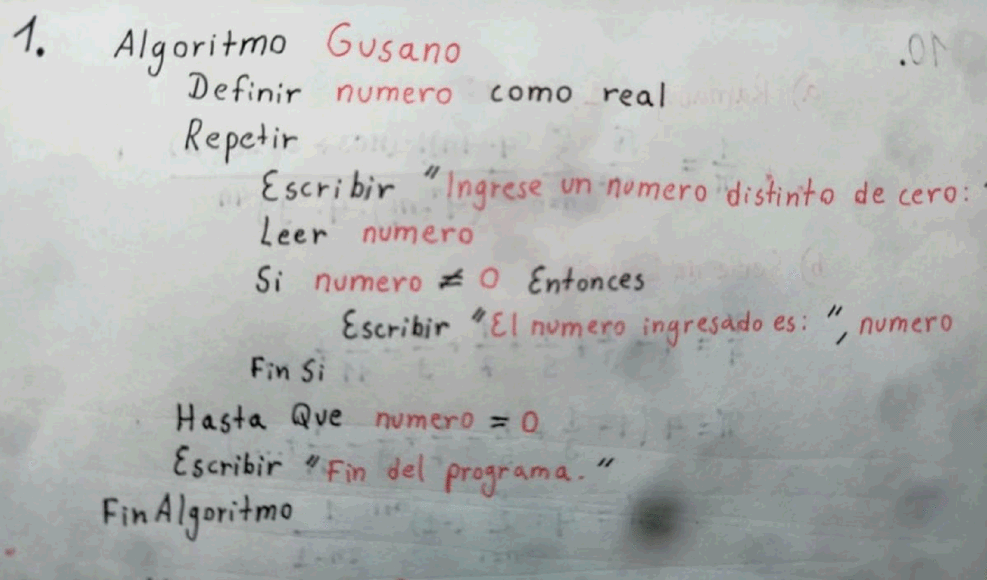 1. Algoritmo Gusano
Definir numero como real
Repetir
Escribir "Ingrese un numero distinto de cero: "
Leer numero
Si numero ≠ 0 Entonces
Escribir "El numero ingresado es: ", numero
Fin Si
Hasta Que numero = 0
Escribir "Fin del programa."
FinAlgoritmo